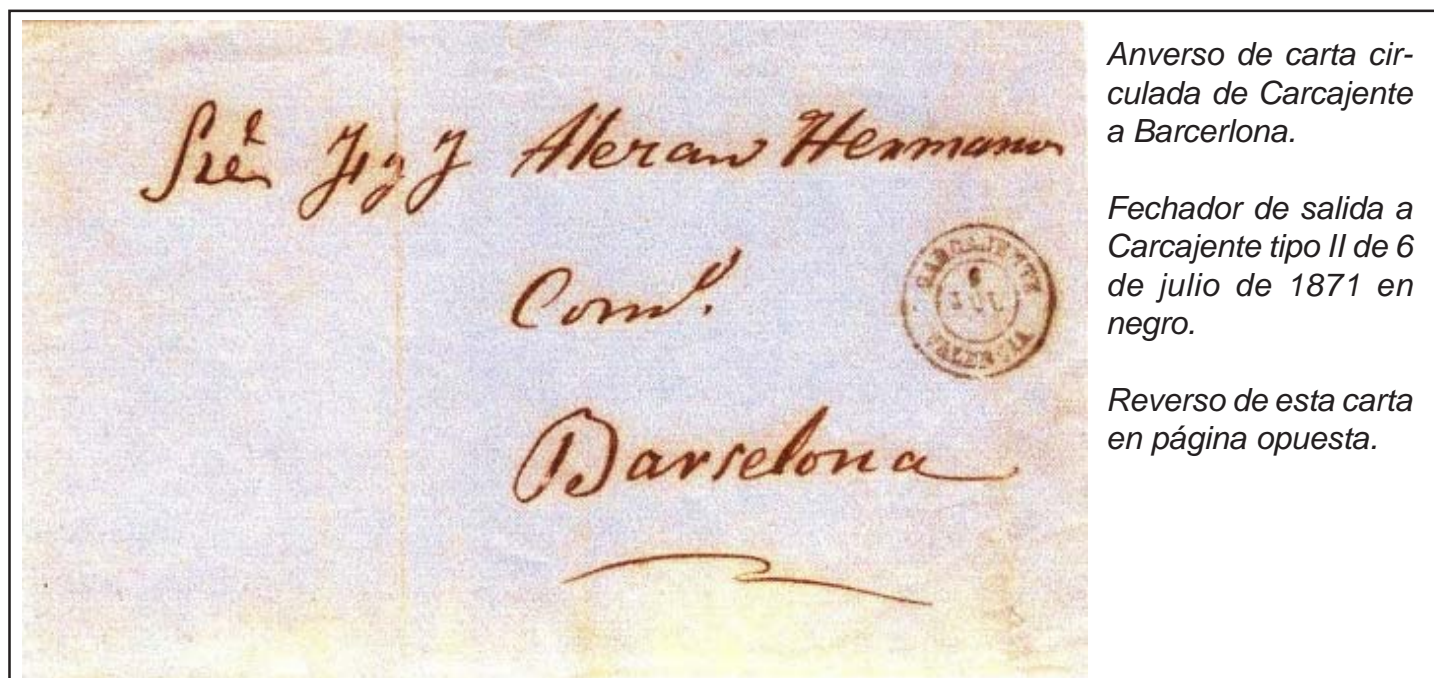 Sres J y J Hermanos
Com.
Barselona
CARCAJENTE
6
JUL
VALENCIA
Anverso de carta cir-
culada de Carcajente
a Barcerlona.
Fechador de salida a
Carcajente tipo II de 6
de julio de 1871 en
negro.
Reverso de esta carta
en página opuesta.